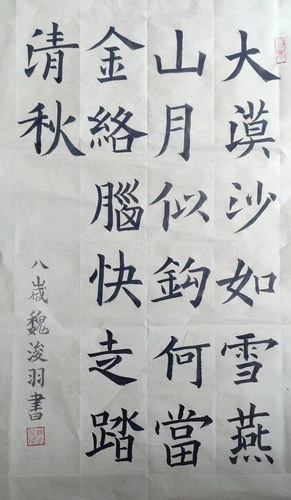 大漠沙如雪燕
山月似鈎何當
金絡腦快走踏
清秋
八歲魏浚羽書